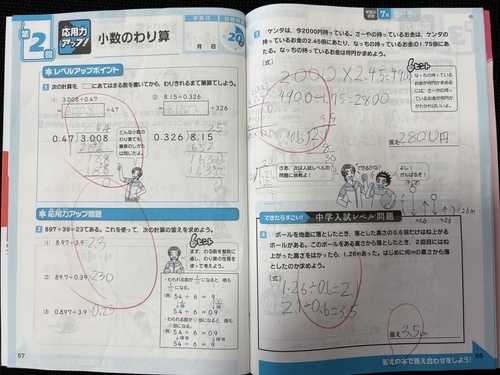 第2回
応用力アップ!
小数のわり算
学習日
月 日
20
レベルアップポイント
1 次の計算を、□にあてはまる数を書いてから、わりきれるまで筆算でしよう。
① 3.008÷0.47
÷47
② 8.15÷0.326
÷326
0.47 3.008
188
188
0
どんな小数の
わり算でも
筆算のしかた
は同じだよ。
0.326 8.15
25
652
1630
1630
応用力アップ問題
2 897÷39=23である。これを使って、次の計算の答えを求めよう。
① 8.97÷3.9
23
② 89.7÷0.39
230
③ 0.897÷3.9
0.23
ヒント
まず、わる数を整数に
直し、わり算の性質を
使って考えよう。
54÷6=9
54÷6=0.9
54÷6=0.9
54÷6=9
57
学習の目安 7月
3 ケンタは、今2000円持っている。さーやの持っているお金は、ケンタの持っているお金の2.45倍にあたり、なっちの持っているお金の1.75倍にあたる。なっちの持っているお金は何円か求めよう。
(式)
2000×2.45=4900
4900÷1.75=2800
ヒント
なっちの持ってい
るお金を求めるに
は、さーやの持っ
ているお金が何円
かがわかればいい
よ。
答え 2800円
さあ、次は入試レベルの
問題に挑戦よ!
できるかな?
よし!
がんばるぞ!
1.26m
できたらすごい! 中学入試レベル問題
4 ボールを地面に落としたとき、落とした高さの0.6倍だけはね上がるボールがある。このボールをある高さから落としたとき、2回目にはね上がった高さをはかったら、1.26mあった。はじめに何mの高さから落としたのか求めよう。
(式)
1.26÷0.6=2.1
2.1÷0.6=3.5
答え 3.5m
答えの本で答え合わせをしよう!
56